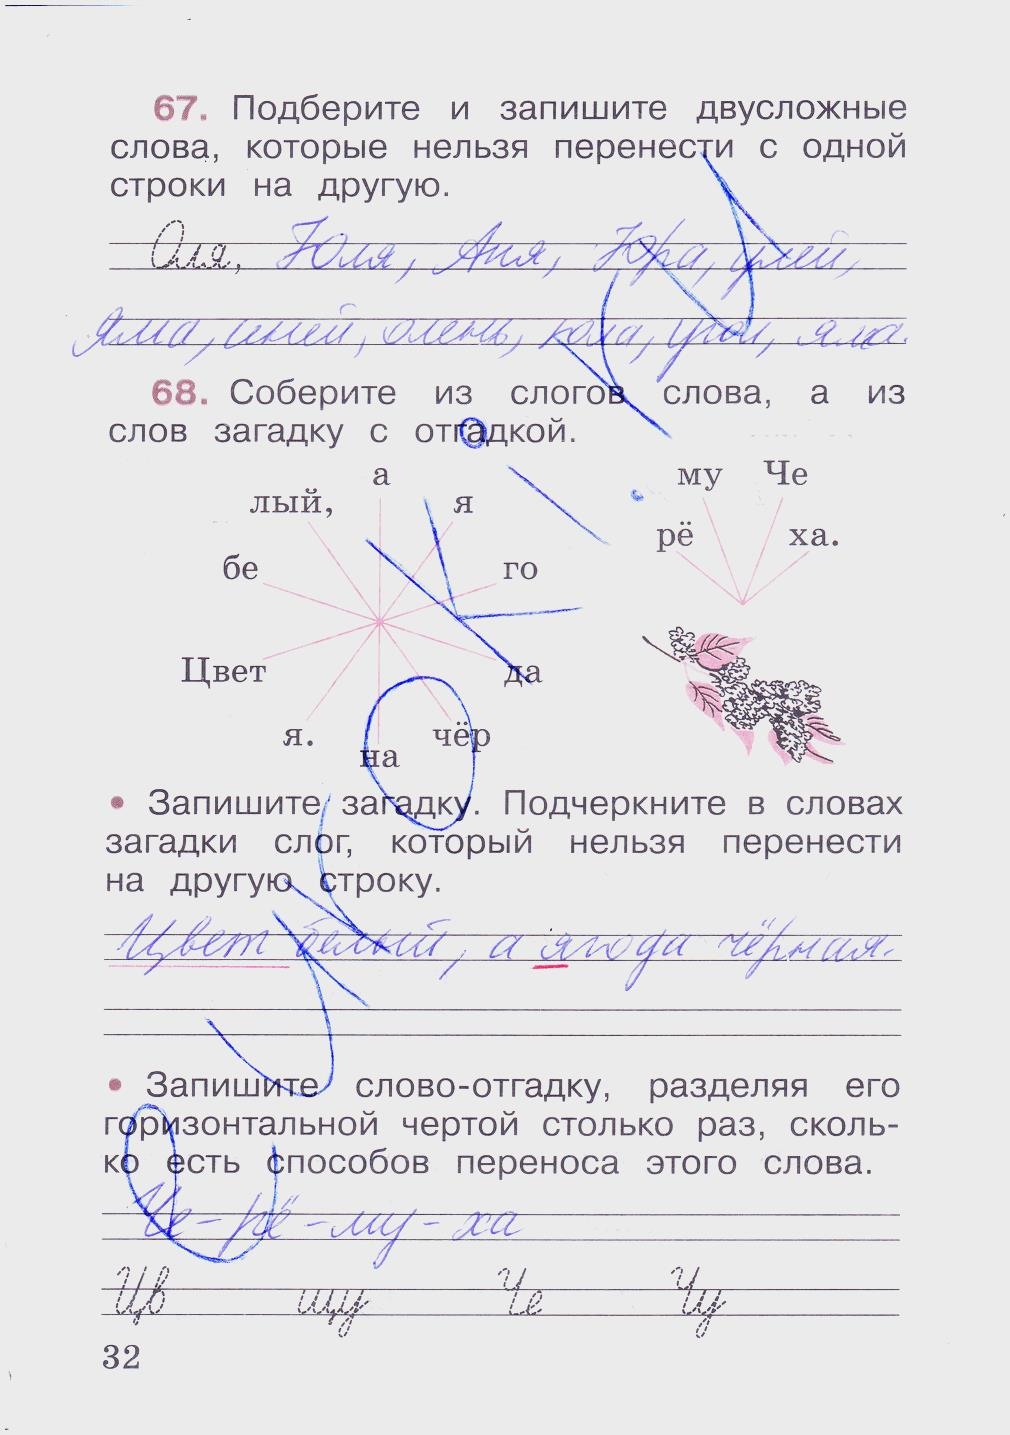 67. Подберите и запишите двусложные
слова, которые нельзя перенести с одной
строки на другую.
Оля, Юля, Аня, Юра, улей,
Яма, иней, олень, кола, урок, яма.
68. Соберите из слогов слова, а из
слов загадку с отгадкой.
а
лый, я
бе го
Цвет да
я. чёр
на
му Че
рё ха.
• Запишите загадку. Подчеркните в словах
загадки слог, который нельзя перенести
на другую строку.
Цвет белый, а ягода чёрная.
• Запишите слово-отгадку, разделяя его
горизонтальной чертой столько раз, сколь-
ко есть способов переноса этого слова.
Че-рё-му-ха
Цв щу Че Чу
32